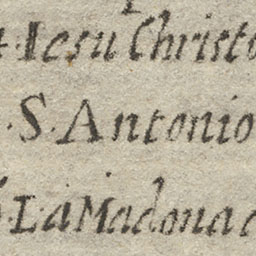 Iesu Christo
S. Antonio
La Madona